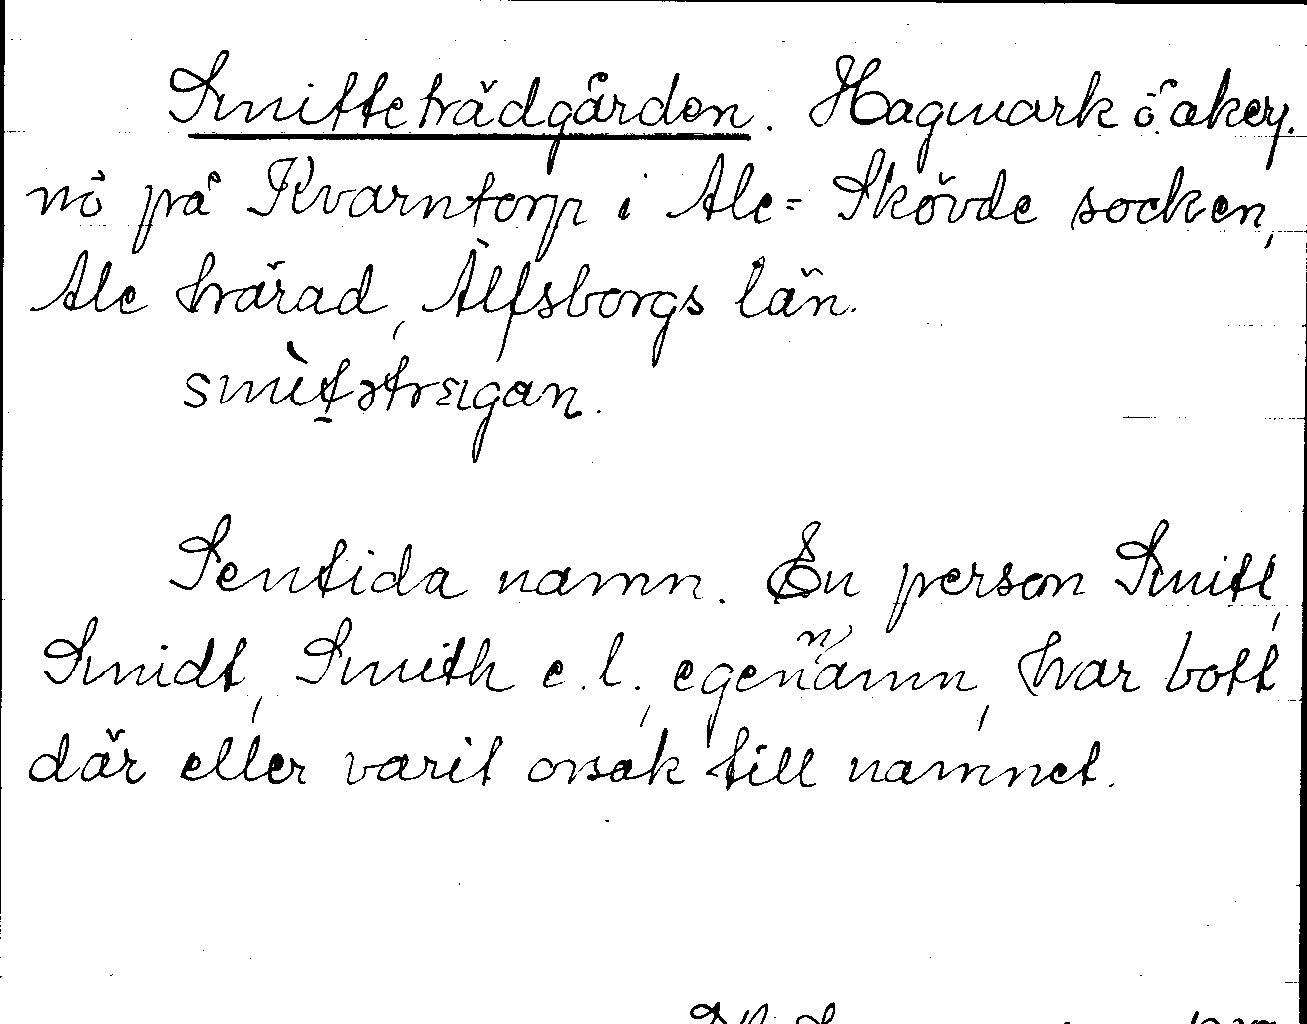 Smitteträdgården. Hagmark o. åker.
nö på Kvarntorp i Ale-Skövde socken,
Ale härad, Älfsborgs län.
smìtətrɛgan.
Sentida namn. En person Smitt,
Smidt, Smith e. l., egennamn, har bott
där eller varit orsak till namnet.